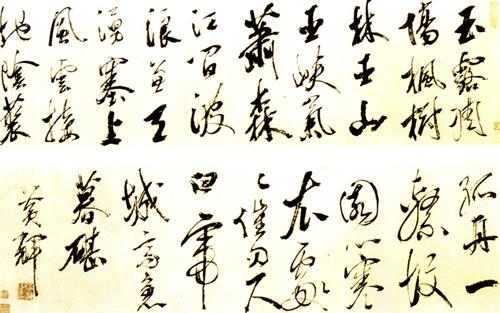 玉露凋
傷楓樹
林巫山
巫峽氣
蕭森
江間波
浪兼天
湧塞上
風雲接
地陰叢
孤舟一
繫故
園心寒
衣處
〻催刀尺
白帝
城高急
暮碪
黃輝